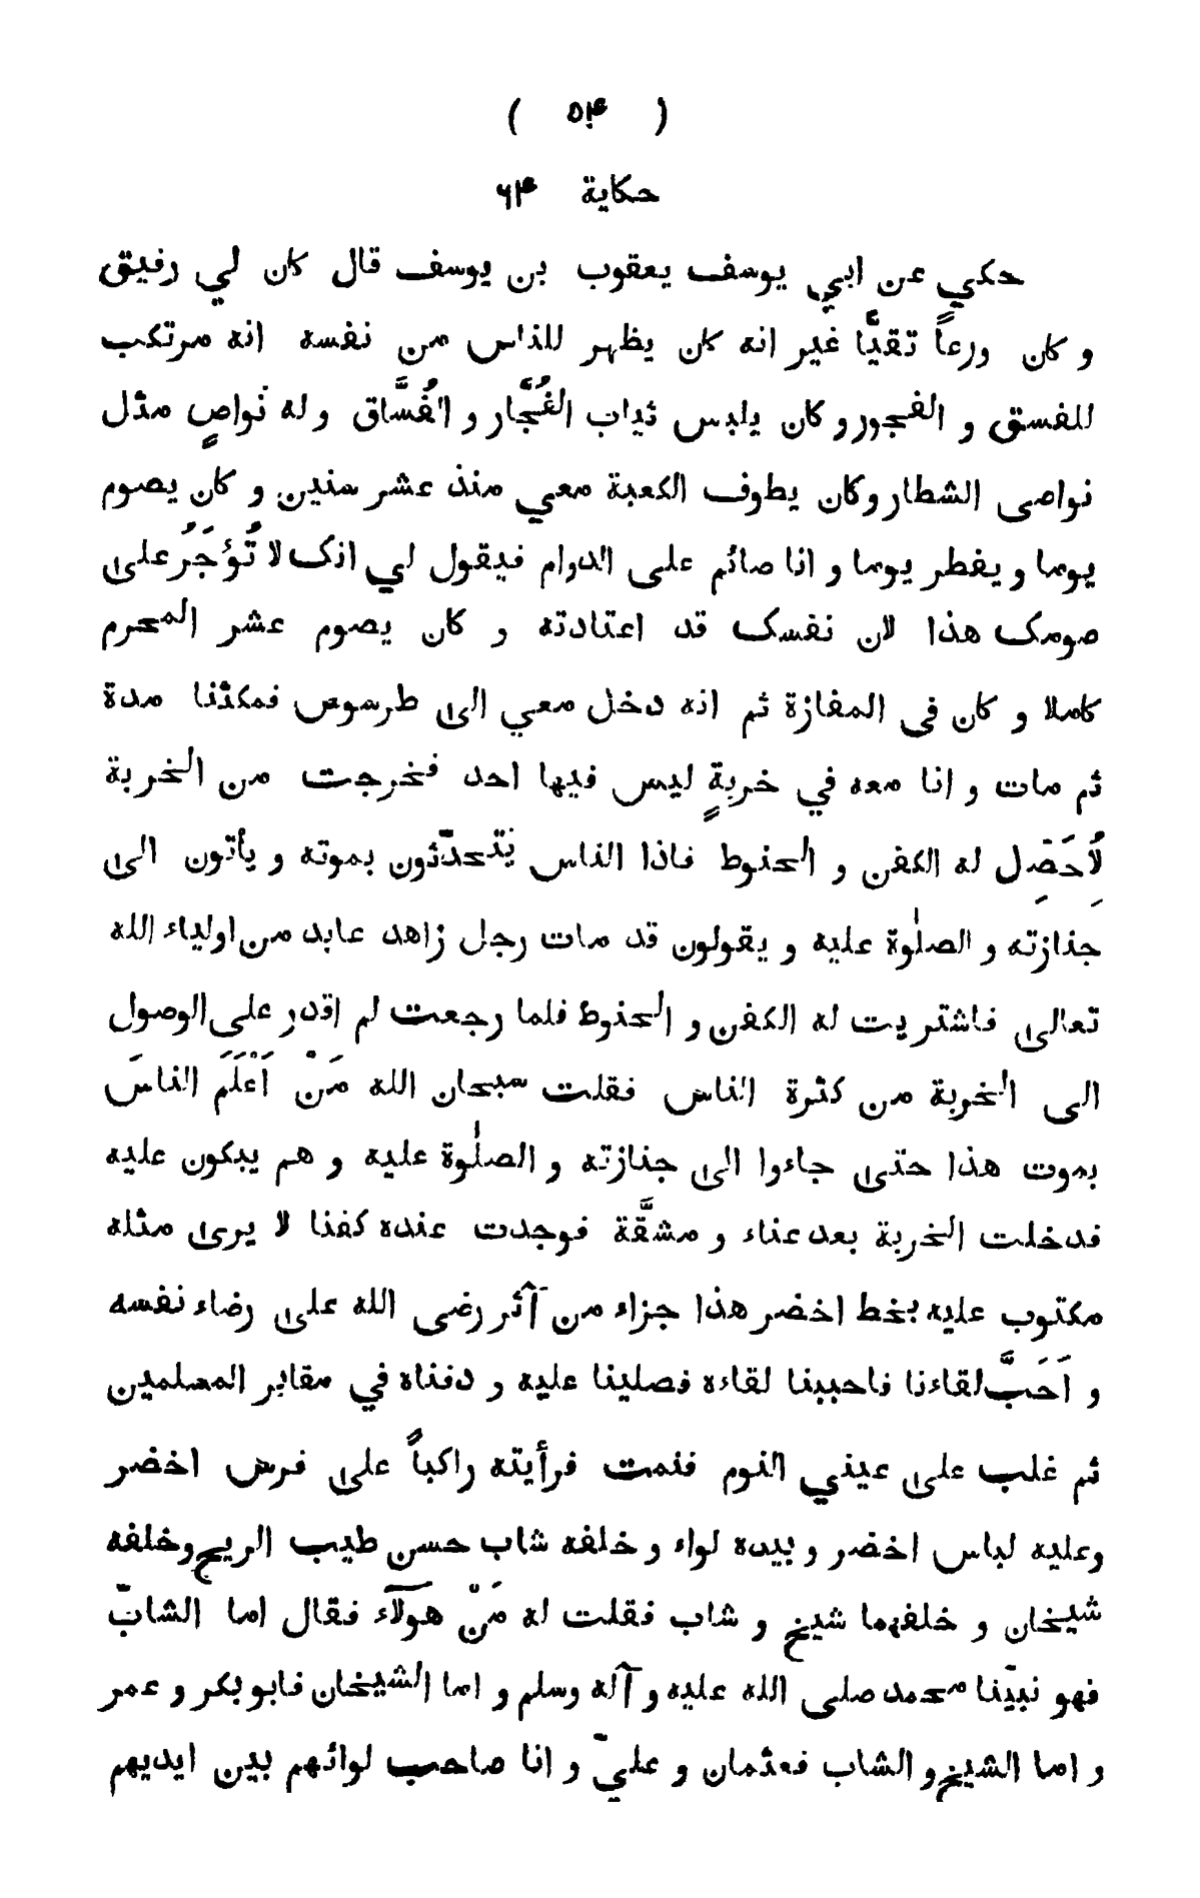 ( ۵۴ )
حكاية ۶۴
حكي عن ابي يوسف يعقوب بن يوسف قال كان لي رفيق
و كان ورعاً تقيًّا غير انه كان يظهر للناس من نفسه انه مرتكب
للفسق و الفجور و كان يلبس ثياب الفُجَّار و الفُسَّاق و له نواصٍ مثل
نواصى الشطار وكان يطوف الكعبة معي منذ عشر سنين و كان يصوم
يوما و يفطر يوما و انا صائم على الدوام فيقول لي انك لا تُؤجَرُ على
صومك هذا لان نفسك قد اعتادته و كان يصوم عشر المحرم
كاملا و كان فى المفازة ثم انه دخل معي الى طرسوس فمكثنا مدة
ثم مات و انا معه في خربةٍ ليس فيها احد فخرجت من الخربة
لِاُحَصِّل له الكفن و الحنوط فاذا الناس يتحدّثون بموته و يأتون الى
جنازته و الصلٰوة عليه و يقولون قد مات رجل زاهد عابد من اولياء الله
تعالى فاشتريت له الكفن و الحنوط فلما رجعت لم اقدر على الوصول
الى الخربة من كثرة الناس فقلت سبحان الله مَنْ اَعْلَمَ الناسَ
بموت هذا حتى جاءوا الى جنازته و الصلٰوة عليه و هم يبكون عليه
فدخلت الخربة بعد عناء و مشقَّة فوجدت عنده كفنا لا يرى مثله
مكتوب عليه بخط اخضر هذا جزاء من آثر رضى الله على رضاء نفسه
و اَحَبَّ لقاءنا فاحببنا لقاءه فصلينا عليه و دفناه في مقابر المسلمين
ثم غلب على عيني النوم فنمت فرأيته راكباً على فرس اخضر
وعليه لباس اخضر و بيده لواء و خلفه شاب حسن طيب الريح وخلفه
شيخان و خلفهما شيخ و شاب فقلت له مَنْ هوَلآء فقال اما الشابّ
فهو نبيّنا محمد صلى الله عليه و آله وسلم و اما الشيخان فابو بكر و عمر
و اما الشيخ و الشاب فعثمان و عليّ و انا صاحب لوائهم بين ايديهم